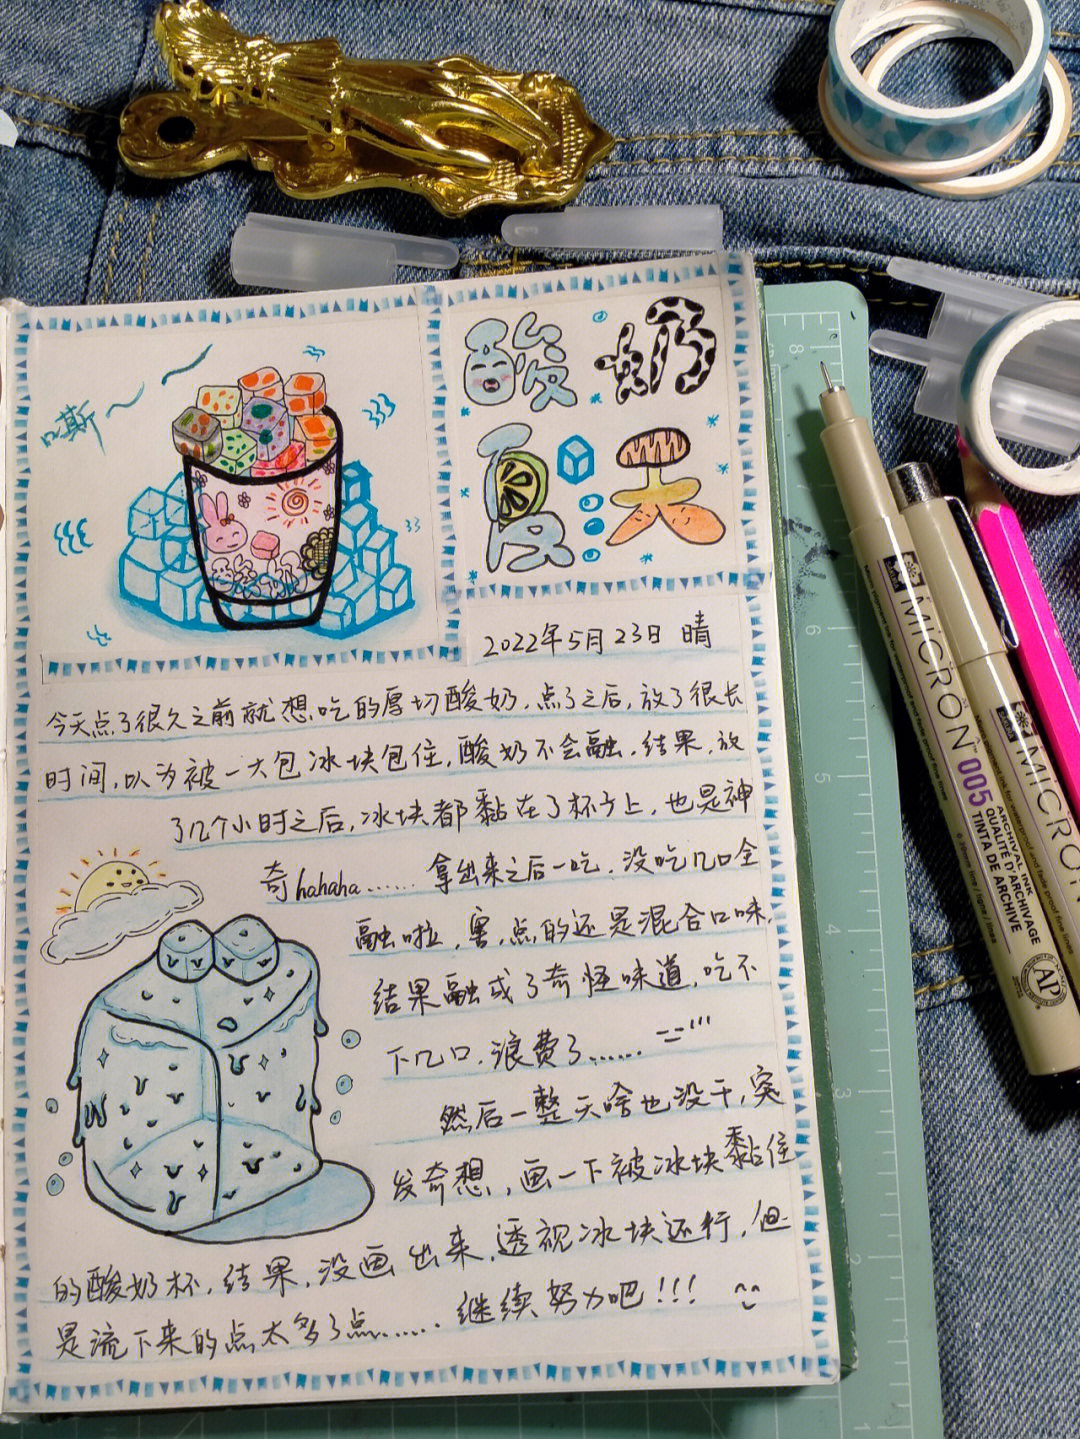 酸奶
夏天
2022年5月23日 晴
今天点了很久之前就想吃的厚切酸奶,点了之后,放了很长
时间,以为被一大包冰块包住,酸奶不会融,结果,放
了几个小时之后,冰块都黏在了杯子上,也是神
奇hahaha…… 拿出来之后一吃,没吃几口全
融啦,害,点的还是混合口味,
结果融成了奇怪味道,吃不
下几口,浪费了……
然后一整天啥也没干,突
发奇想,画一下被冰块黏住
的酸奶杯,结果,没画出来,透视冰块还行,但
是流下来的点太多了点……继续努力吧!!!
MICRON 005
ARCHIVAL INK
QUALITÉ D'ARCHIVAGE
TINTA DE ARCHIVE
AP
MICRON
8
6
5
4
3
2
1